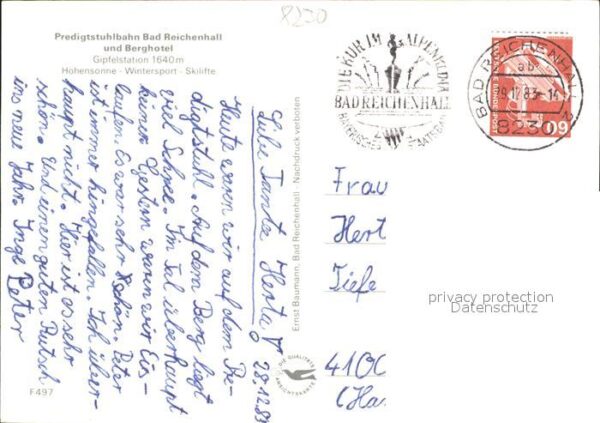 8230
Predigtstuhlbahn Bad Reichenhall
und Berghotel
Gipfelstation 1640 m
Höhensonne - Wintersport - Skilifte
Liebe Tante Herta! 28.12.83
Heute waren wir auf dem Pre-
digtstuhl. Auf dem Berg liegt
viel Schnee. Im Tal überhaupt
keiner. Gestern waren wir Eis-
laufen. Es war sehr schön. Peter
ist immer hingefallen. Ich über-
haupt nicht. Hier ist es sehr
schön. Und einen guten Rutsch
ins neue Jahr. Inge Peter
F497
Ernst Baumann, Bad Reichenhall · Nachdruck verboten
DIE QUALITÄTS
ANSICHTSKARTE
DIE KUR IM ALPENKLIMA
BAD REICHENHALL
BAYERISCHES STAATSBAD
BAD REICHENHALL
ab
83-14
8230
60
Frau
Hert
Tiefe
4100
(Ha
privacy protection
Datenschutz